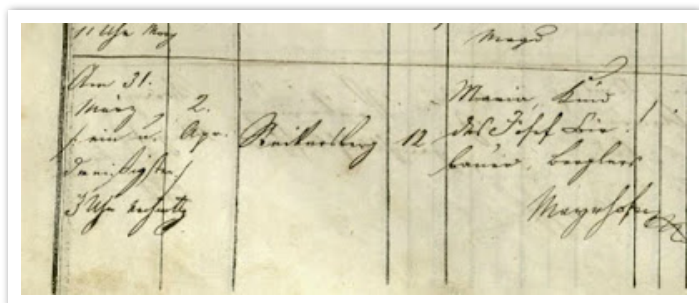 11 Uhr Morg
Magd
Am 31.
März
(: ein u.
dreißigsten :)
3 Uhr nachmittg
2.
Apr.
Reikersberg
12
Maria, Kind
des Josef Lie-
bauer, Berglers
Mayrhofer
1.